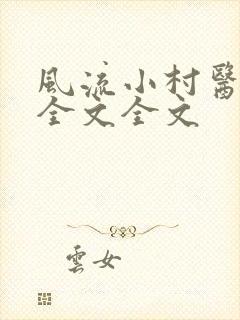 風流小村醫
全文全文
雲女